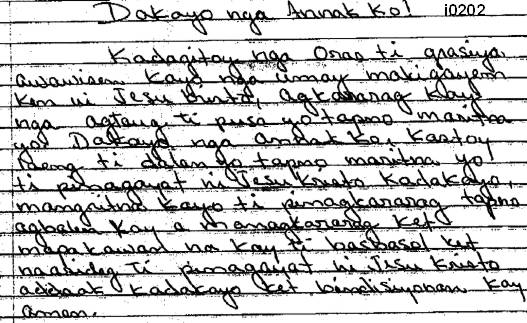 Dakayo nga Annak Ko! i0202
Kadagitoy nga Oras ti grasiya
awawisen kayo nga umay makigayem
ken ni Jesu Kristo, agkararag kayo
nga agtaud ti puso yo tapno maritna
yo! Dakayo nga annak ko, kastoy
ti dalan yo tapno maritna yo
ti pinagayat ni Jesu Kristo kadakayo,
mangritna kayo ti pinagkararag tapno
agbalin kay a managkararag ket
mapakawan na kay ti basbasol ket
naasideg ti pinagayat ni Jesu Kristo
addaak kadakayo ket bindisiyonan kay
amen.